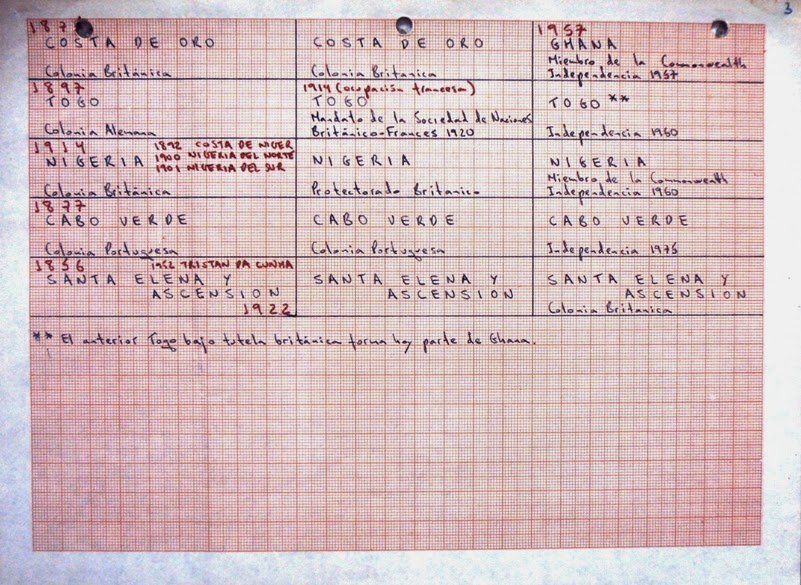 3
COSTA DE ORO
Colonia Británica
COSTA DE ORO
Colonia Britanica
1957
GHANA
Miembro de la Commonwealth
Independencia 1957
1897
TOGO
Colonia Alemana
1914 (ocupación francesa)
TOGO
Mandato de la Sociedad de Naciones
Británico-Frances 1920
TOGO **
Independencia 1960
1914
1892 COSTA DE NIGER
NIGERIA
1900 NIGERIA DEL NORTE
1901 NIGERIA DEL SUR
Colonia Británica
NIGERIA
Protectorado Britanico
NIGERIA
Miembro de la Commonwealth
Independencia 1960
1877
CABO VERDE
Colonia Portuguesa
CABO VERDE
Colonia Portuguesa
CABO VERDE
Independencia 1975
1856
1952 TRISTAN DA CUNHA
SANTA ELENA Y
ASCENSION
1922
SANTA ELENA Y
ASCENSION
SANTA ELENA Y
ASCENSION
Colonia Britanica
** El anterior Togo bajo tutela británica forma hoy parte de Ghana.